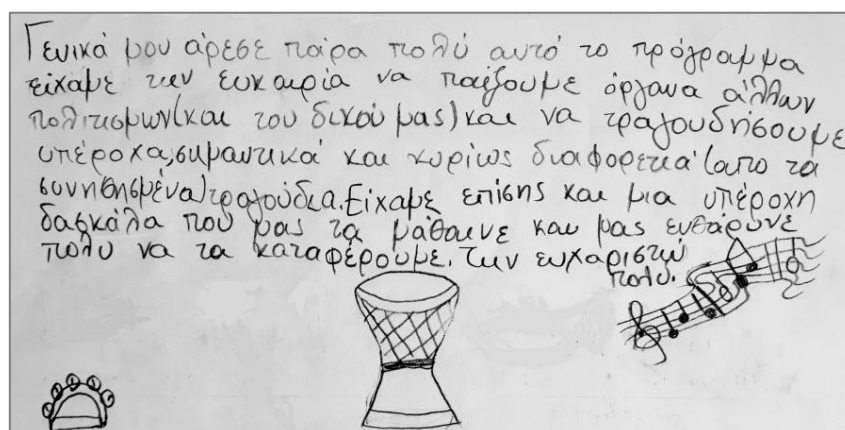 Γενικά μου άρεσε πάρα πολύ αυτό το πρόγραμμα
είχαμε την ευκαιρία να παίξουμε όργανα άλλων
πολιτισμων(και του δικού μας) και να τραγουδήσουμε
υπέροχα, σημαντικά και κυρίως διαφορετικά (απο τα
συνηθησμένα) τραγούδια. Είχαμε επίσης και μια υπέροχη
δασκάλα που μας τα μάθαινε και μας ενθάρυνε
πολυ να τα καταφέρουμε. την ευχαριστώ
πολυ.